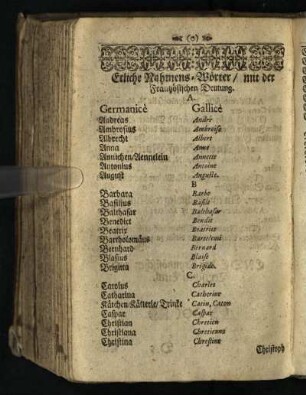 (o)
Etliche Nahmens-Wörter / mit der
Frantzösischen Deutung.
A.
Germanicè Gallicè
Andreas André
Ambrosius Ambroise
Albrecht Albert
Anna Anne
Annichen/Aennelein Annette
Antonius Antoine
August Auguste.
B
Barbara Barbe
Basilius Basile
Balthasar Balthasar
Benedict
Beatrix Beatrice
Bartholomäus
Bernhard Bernard
Blasius Blaise
Brigitta Brigide.
C.
Carolus Charles
Catharina Catherine
Kätchen/Kätterle/Trincke Catin, Caton
Caspar Caspar
Christian Chretien
Christiana Chretienne
Christina Christine
Christoph